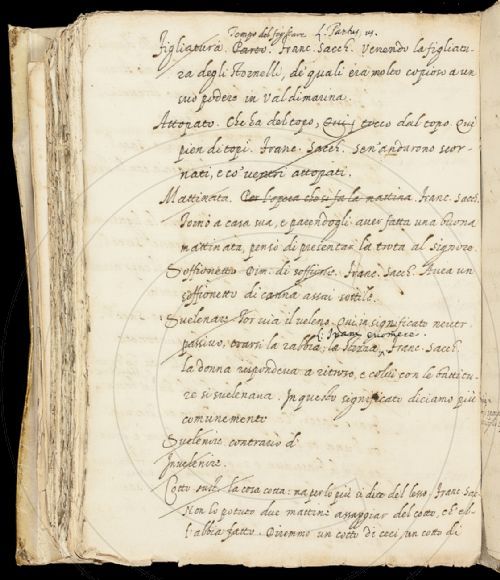 Tempo del figliare L. Partus, us.
figliatura. Parto. Franc. Sacch. Venendo la figliatu-
ra degli stornelli, de' quali era molto copioso a un
suo podere in Valdimarina.
Attopato. Che ha del topo, Qui, tocco dal topo. Qui
pien di topi. Franc. Sacch. Sen'andarono scor-
nati, e co' ventri attopati.
Mattinata. Per l'opera che si fa la mattina. Franc. Sacc.
Tornò a casa sua, e parendogli aver fatta una buona
mattinata, pensò di presentar la trota al Signore.
Soffionetto Dim. di soffione. Franc. Sacch. Avea un
soffionetto di canna assai sottile.
Svelenare Tor via il veleno. Qui in significato neutr.
L.
passivo, trarsi la rabbia, la stizza. Franc. Sacch.
la donna rispondeva a ritroso, e colui con le battitu-
re si svelenava. In questo significato diciamo più
comunemente
Svelenire contrario di
Invelenire.
Cotto sust. la cosa cotta: ma per lo più si dice del lesso. Franc. Sac.
Non lo potuto due mattine assaggiar del cotto, ch'el-
l'abbia fatto. Diremmo un cotto di ceci, un cotto di